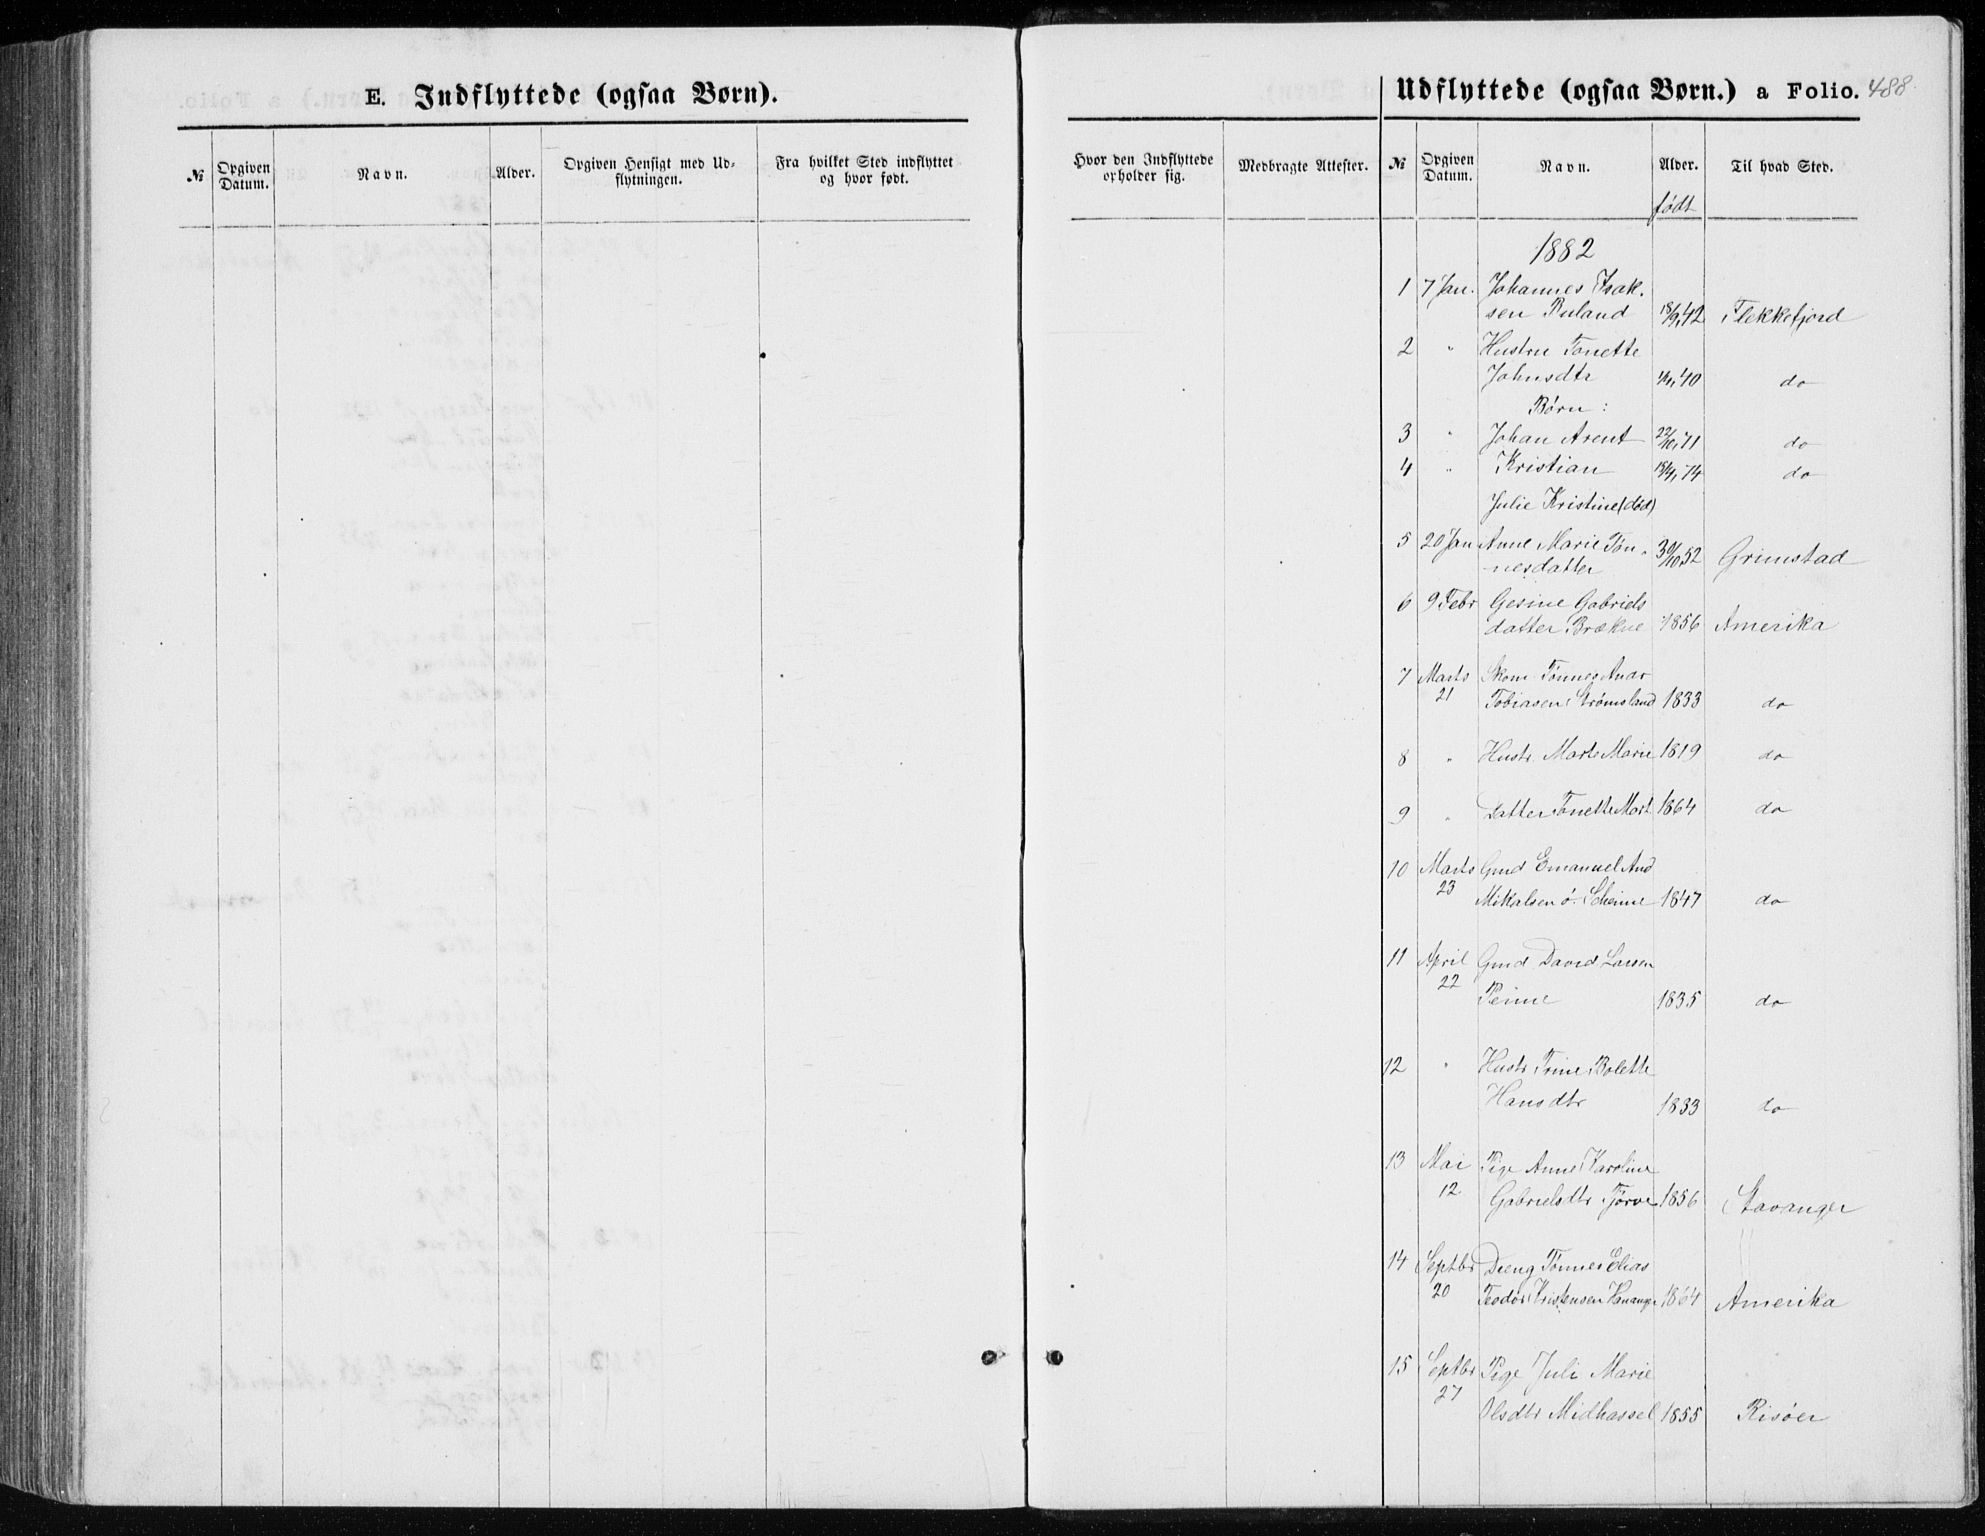 E. Indflyttede (ogsaa Børn).
№
Opgiven Datum.
Navn.
Alder.
Opgiven Hensigt med Ud-
flytningen.
Fra hvilket Sted indflyttet
og hvor født.
Udflyttede (ogsaa Børn.) a Folio. 488
Hvor den Indflyttede
opholder sig.
Medbragte Attester.
№
Opgiven Datum.
Navn.
Alder.
Til hvad Sted.
født
1882
1 7 Jan. Johannes Isak-
sen Ruland 18/9,42 Flekkefjord
2 " Hustru Tonette
Johnsdtr 40 do
Børn:
3 " Johan Arent 22/10,71 do
4 " Kristian 74 do
Julie Kristine (død)
5 20 Jan Anne Marie Tøn-
nesdatter 30/10,52 Grimstad
6 9 Febr Gesine Gabriels
datter Brækne 1856 Amerika
7 Marts Tønnes Andr
21 Tobiasen Strømsland 1833 do
8 " Hustr. Marte Marie 1819 do
9 " Datter Tonette Mart. 1864 do
10 Marts Gmd Emanuel And
23 Mikalsen ø. Scheime 1847 do
11 April Gmd David Larsen
22 Penne 1835 do
12 " Hustr Trine Bolette
Hansdtr 1833 do
13 Mai Pige Anne Karoline
12 Gabrielsdtr Tjørve 1856 Stavanger
14 Septbr Dreng Tønnes Elias
20 Teodor Kristensen Vananger 1864 Amerika
15 Septbr Pige Juli Marie
27 Olsdtr Midhassel 1855 Risøer